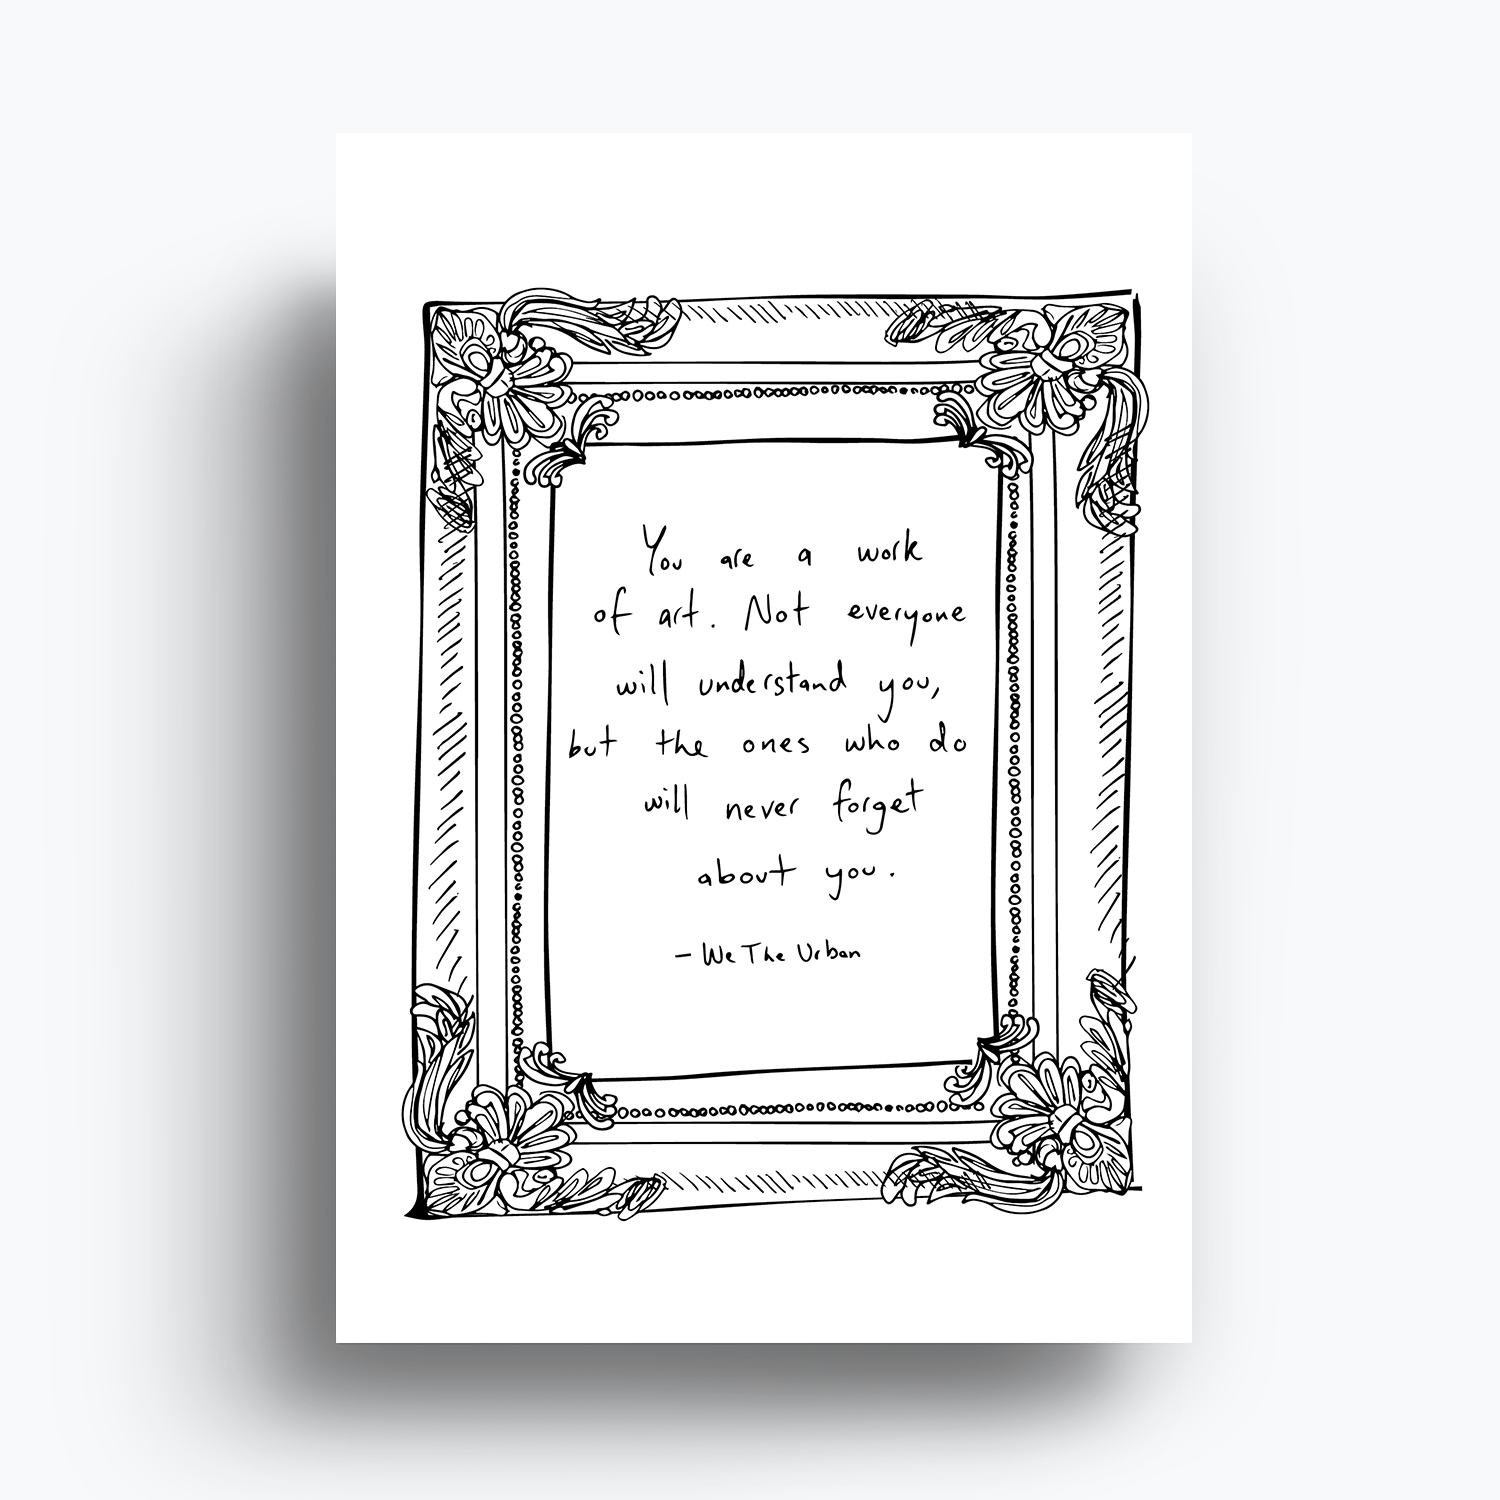 You are a work
of art. Not everyone
will understand you,
but the ones who do
will never forget
about you.
– We The Urban